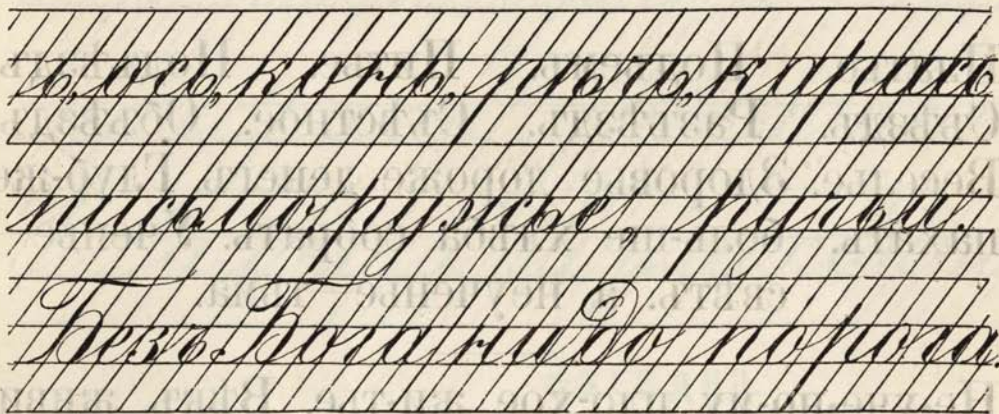 ь, ось, конь, рѣчь, карась
письмо, ружье, ручьи.
Безъ Бога ни до порога.